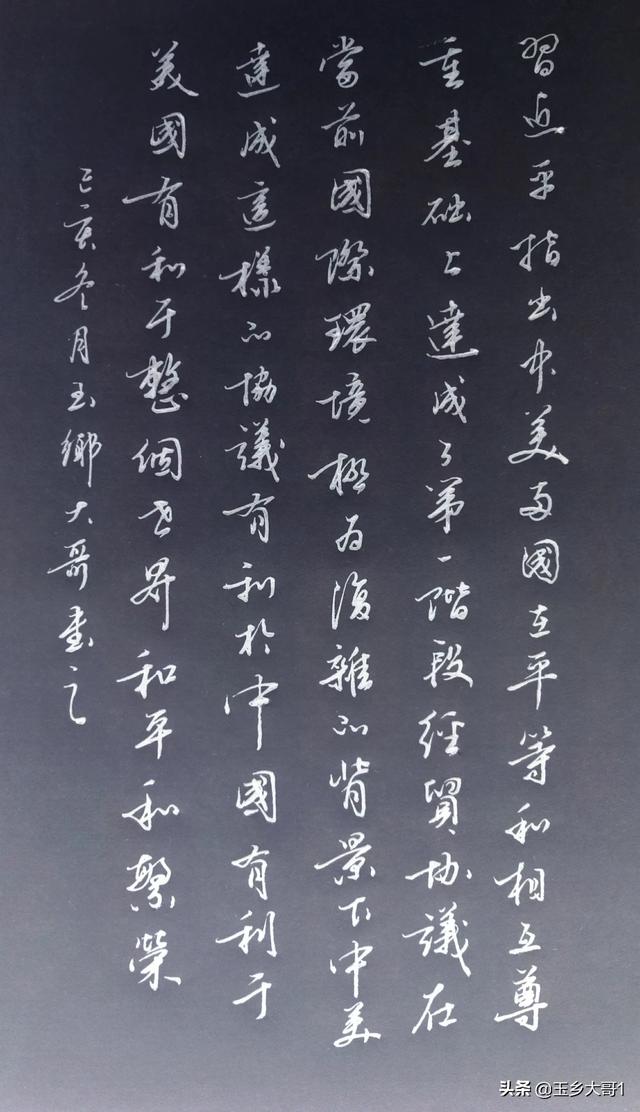 習近平指出中美两國在平等和相互尊
重基础上達成了第一階段經貿协議在
當前國際環境極为復雜的背景下中美
達成這樣的協議有利於中國有利于
美國有利于整個世界和平和繁榮
己亥冬月玉鄉大哥書之
头条 @玉乡大哥1